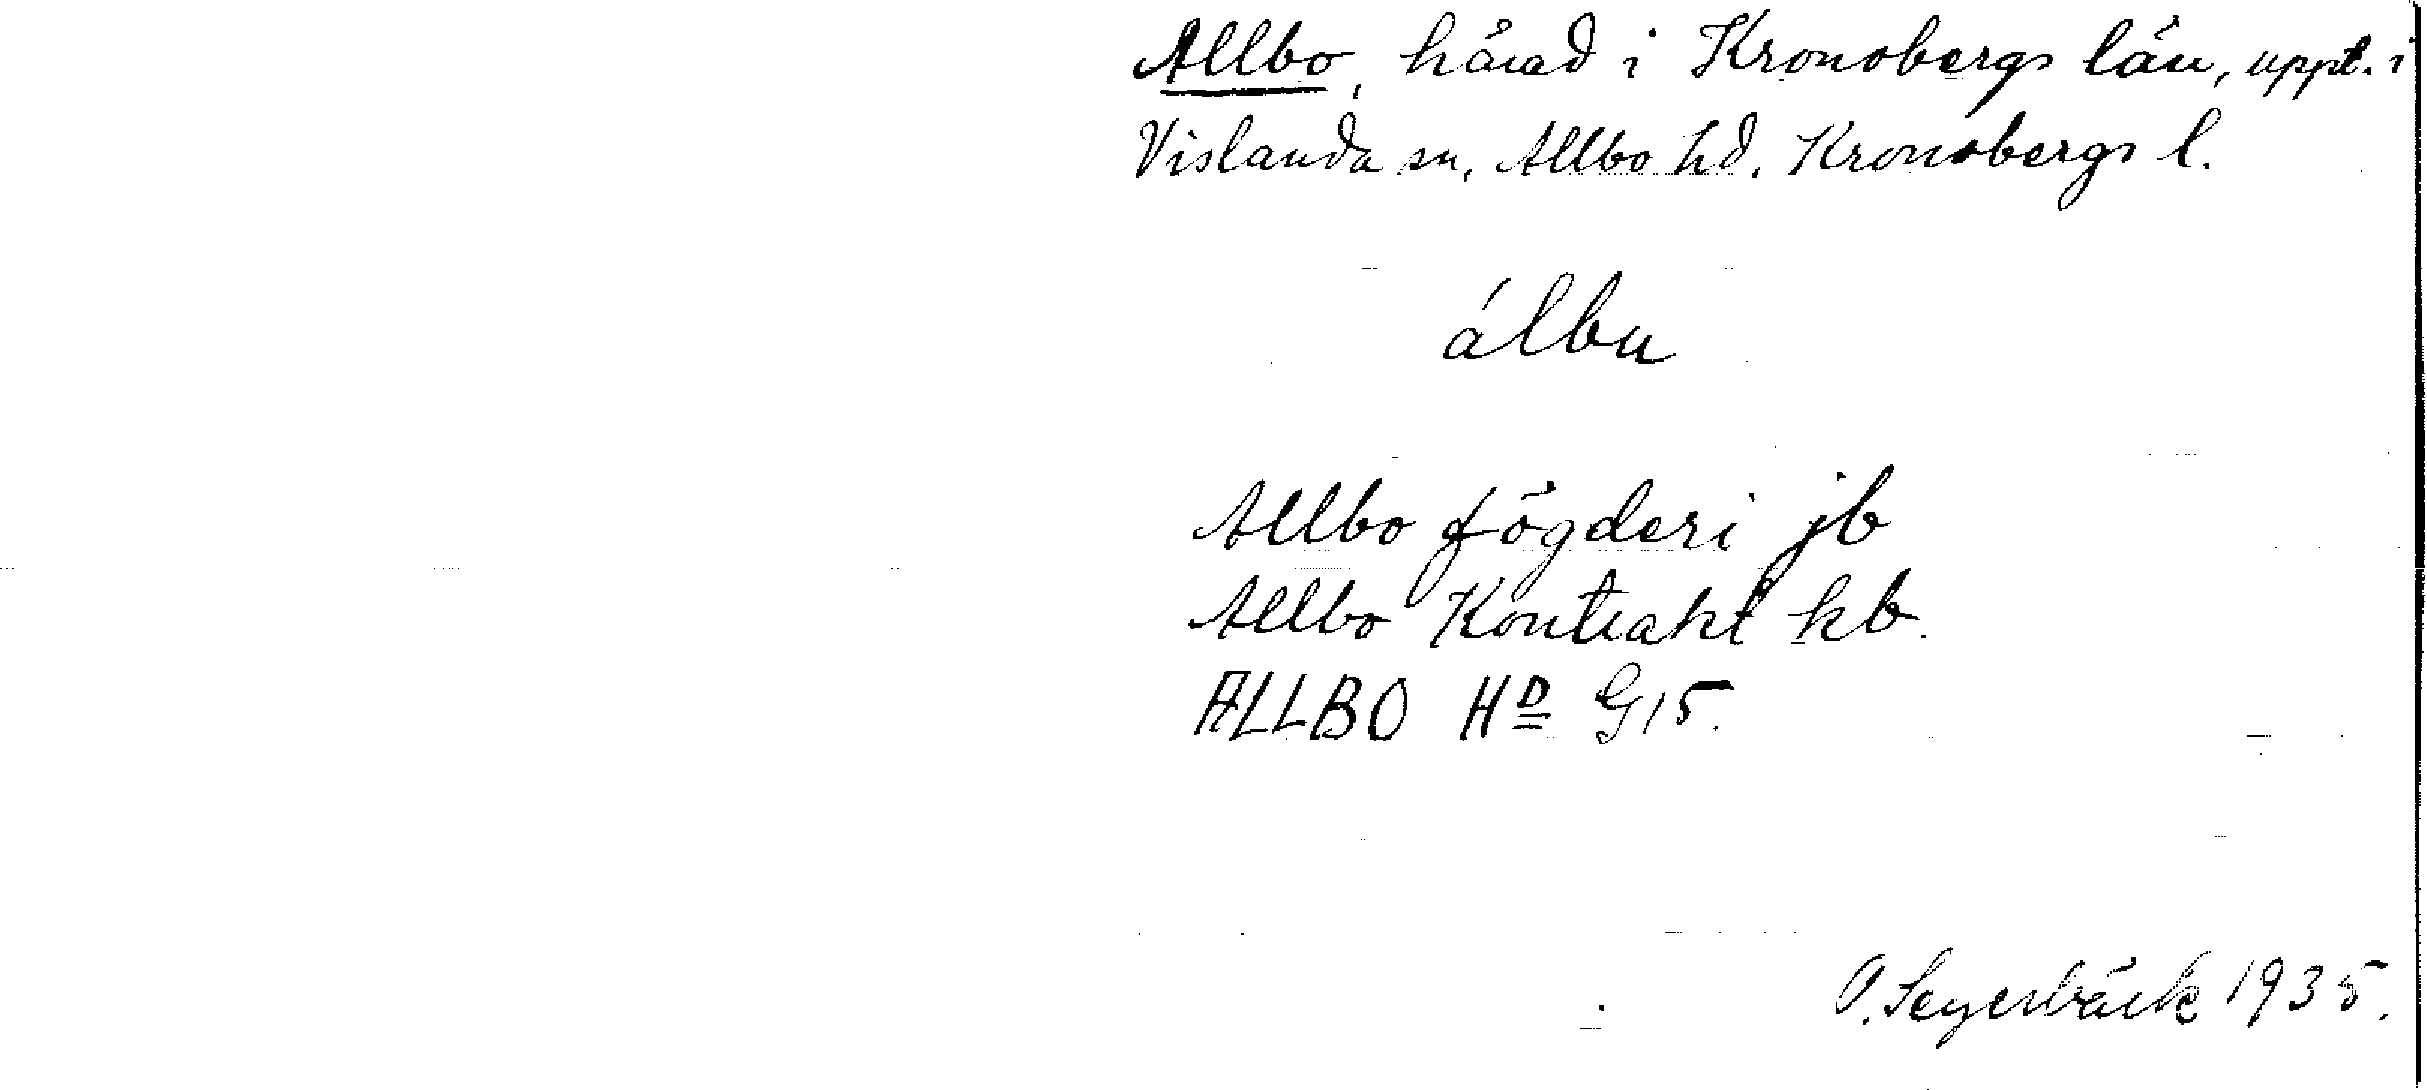 Allbo, härad i Kronobergs län, uppt. i
Vislanda sn, Allbo hd. Kronobergs l.
álbu
Allbo fögderi jb
Allbo Kontrakt kb.
ALLBO HD G15.
O. 1935.